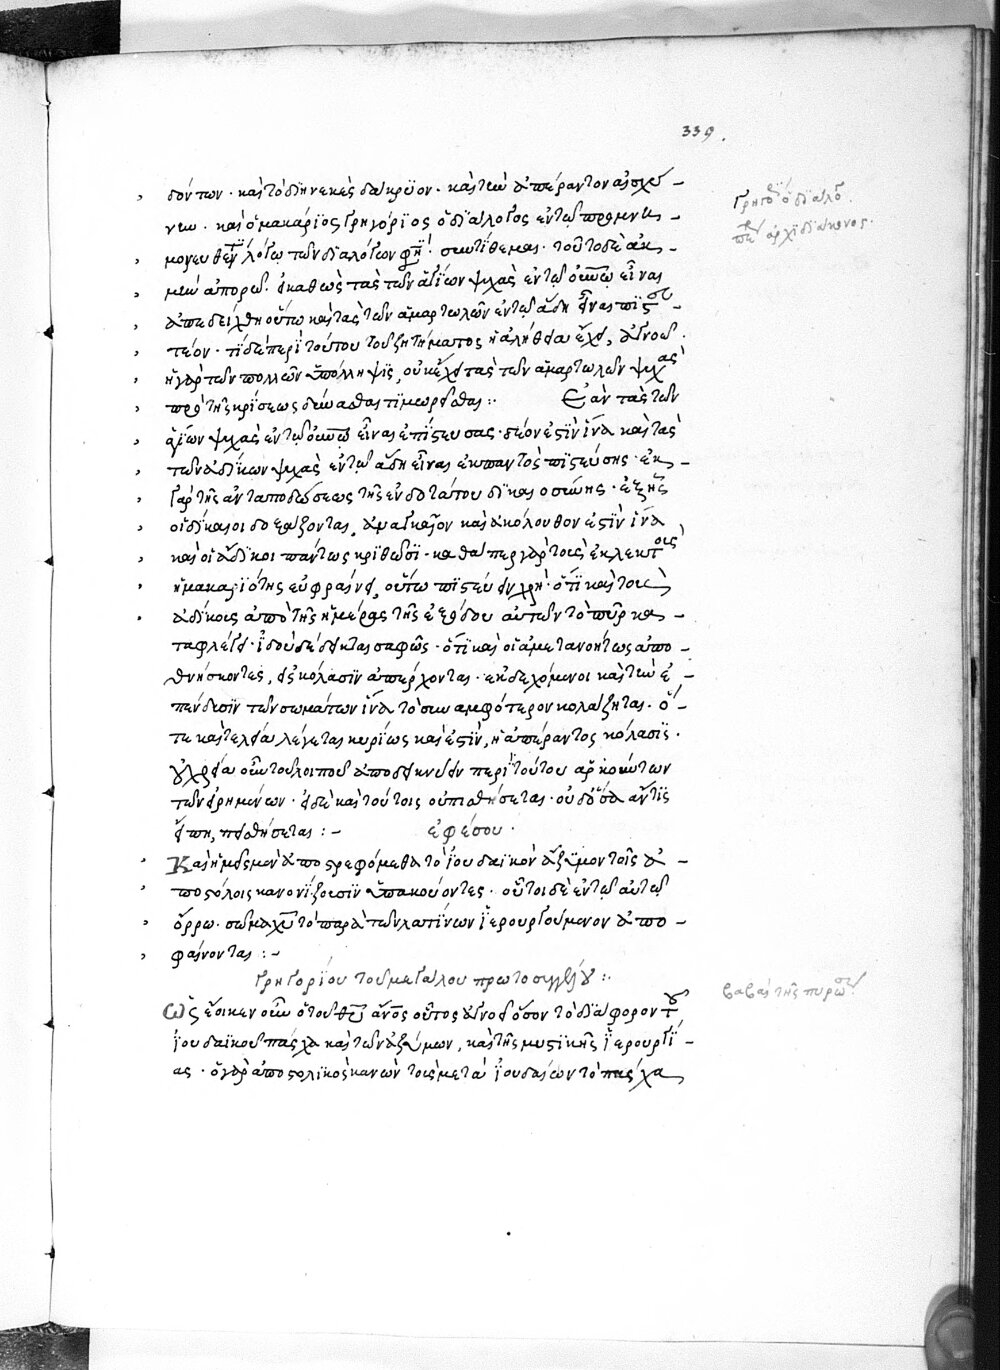 339.
δόντων · καὶ τὸ διηνεκὲς δακρύον · καὶ τὴν ἀπέραντον αἰσχύ –
νην · καὶ ὁ μακάριος Γρηγόριος ὁ διάλογος ἐν τῷ
λόγῳ τῶν διαλόγων φησί · τοῦτο δὲ ἀκ –
μὴν ἀπορῶ · καθὼς τὰς τῶν ἁγίων ψυχὰς ἐν τῷ οὐνῷ εἶναι
ἀπεδείχθη οὕτω καὶ τὰς τῶν ἁμαρτωλῶν ἐν τῷ ἅδῃ εἶναι πιστευ –
τέον · τί δὲ περὶ τούτου τοῦ ζητήματος ἡ ἀλήθεια ἔχει, ἀγνοῶ ·
ἡ γὰρ τῶν πολλῶν ὑπόληψις, οὐκ ἔχει τὰς τῶν ἁμαρτωλῶν ψυχὰς
πρὸ τῆς κρίσεως τιμωρεῖσθαι :· Ἐὰν τὰς τῶν
ἁγίων ψυχὰς ἐν τῷ οὐνῷ εἶναι ἐπίστευσας · δέον ἐστὶν ἵνα καὶ τὰς
τῶν ἀδίκων ψυχὰς ἐν τῷ ἅδῃ εἶναι ἐκ παντὸς πιστεύσῃς · ἐκ –
γὰρ τῆς ἀνταποδώσεως τῆς ἐνδοτάτου δικαιοσύνης · ἐξ ἧς
οἱ δίκαιοι δοξάζονται, ἀναγκαῖον καὶ ἀκόλουθον ἐστὶν ἵνα
καὶ οἱ ἄδικοι πάντως κριθῶσι · καθάπερ γὰρ τοὺς ἐκλεκτοὺς
ἡ μακαριότης εὐφραίνει, οὕτω πιστεύειν χρὴ · ὅτι καὶ τοὺς
ἀδίκους ἀπὸ τῆς ἡμέρας τῆς ἐξόδου αὐτῶν τὸ πῦρ κα –
ταφλέγει · ἰδοὺ δείκται σαφῶς · ὅτι καὶ οἱ ἀμετανοήτως ἀπο –
θνήσκοντες, εἰς κόλασιν ἀπέρχονται · ἐκδεχόμενοι καὶ τὴν ἐ –
πένδυσιν τῶν σωμάτων ἵνα τὸ συναμφότερον κολάζηται · ὅ –
τε καὶ τελεία λέγεται κυρίως καὶ ἐστὶν, ἡ ἀπέραντος κόλασις ·
χρεία οὖν τοῦ λοιποῦ ἀποδεικνύειν περὶ τούτου ἀρκούντων
τῶν εἰρημένων · εἰ δὲ καὶ τούτοις οὐ πεισθήσεται · οὐδ᾽ ὅσα ἄν τις
εἴπῃ, πεισθήσεται :–
ἐφέσου ·
Καὶ ἡμεῖς μὲν ἀποστρεφόμεθα τὸ ἰουδαϊκὸν ἄζυμον τοῖς ἀ –
ποστόλοις κανονίζουσιν ὑπακούοντες · οὗτοι δὲ ἐν τῷ αὐτῷ
ὅρῳ · σῶμα χυ τὸ παρὰ τῶν λατίνων ἱερουργούμενον ἀπο –
φαίνονται :–
Γρηγορίου τοῦ μεγάλου πρωτοσυγγέλου :·
Ὡς ἔοικεν οὖν ὁ τοῦ θυ ἄνος οὗτος ἀγνοεῖ ὅσον τὸ διάφορον τοῦ
ἰουδαϊκοῦ πάσχα καὶ τῶν ἀζύμων, καὶ τῆς μυστικῆς ἱερουργί –
ας · ὁ γὰρ ἀποστολικὸς κανὼν τοὺς μετὰ ἰουδαίων τὸ πάσχα
Γρηγό ὁ διάλο.
ἀρχιδιάκονος.
βαβαὶ τῆς πυρώσ.